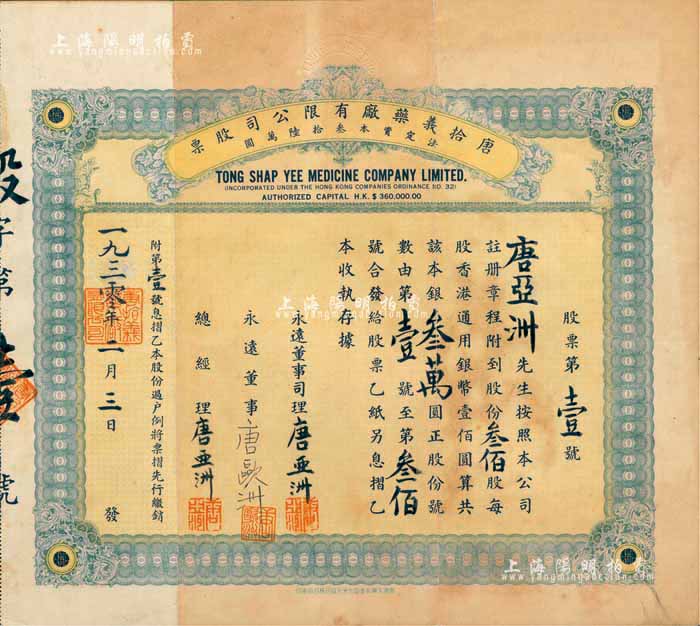 上海陽明拍賣
www.yangmingauction.com
唐拾義藥廠有限公司股票
法定資本叁拾陸萬圓
TONG SHAP YEE MEDICINE COMPANY LIMITED.
(INCORPORATED UNDER THE HONG KONG COMPANIES ORDINANCE NO. 32)
AUTHORIZED CAPITAL H.K. $ 360,000.00
股票第壹號
唐亞洲先生按照本公司
註册章程附到股份叁佰股每
股香港通用銀幣壹佰圓算共
該本銀叁萬圓正股份號
數由第壹號至第叁佰
號合發給股票乙紙另息摺乙
本收執存據
永遠董事司理唐亞洲
永遠董事唐歐洲
總經理唐亞洲
附第壹號息摺乙本股份過户例將票摺先行繳銷
一九三零年二月三日發
股字第壹號
上海陽明拍賣
www.yangmingauction.com
上海陽明拍賣
www.yangmingauction.com